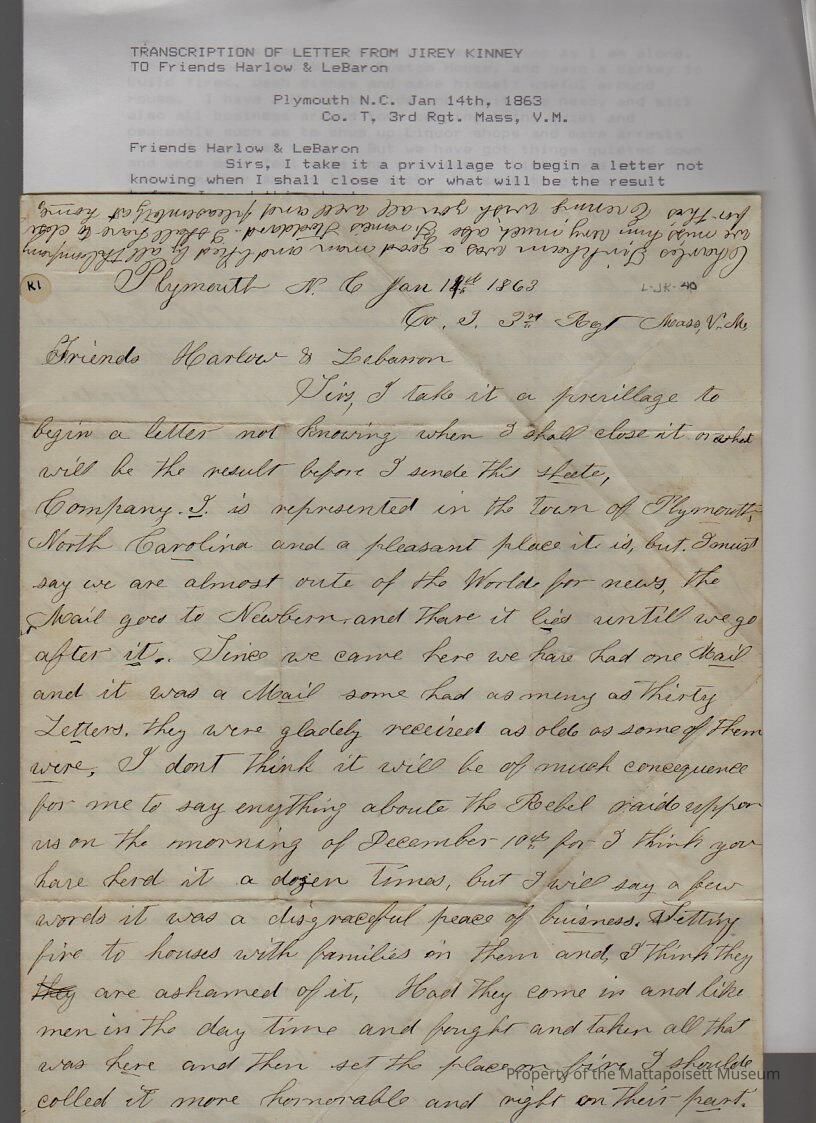 TRANSCRIPTION OF LETTER FROM JIREY KINNEY
TO Friends Harlow & LeBaron
Plymouth N.C. Jan 14th, 1863
Co. T, 3rd Rgt. Mass, V.M.
Friends Harlow & LeBaron
Sirs, I take it a privillage to begin a letter not
knowing when I shall close it or what will be the result
Charles Tinkham was a good man and liked by all the Company
we miss him very much also Thomas Stoddard. I shall have to close
for this Evening wish you all well and pleasently at home
K1
L-JK-40
Plymouth N. C Jan 14th 1863
Co. I. 3rd Regt Mass, V. M.
Friends Harlow & Lebarron
Sirs, I take it a previllage to
begin a letter not knowing when I shall close it or what
will be the result before I sende this sheete,
Company. I. is represented in the town of Plymouth,
North Carolina and a pleasant place it is, but. I must
say we are almost oute of the Worlde for news, the
Mail goes to Newbern, and thare it lies untill we go
after it.. Since we came here we have had one Mail
and it was a Mail some had as meny as thirty
Letters. they were gladely received as olde as some of them
were, I dont think it will be of much concequence
for me to say enything aboute the Rebel raid uppon
us on the morning of December 10th for I think you
have herd it a dozen times, but I will say a few
words it was a disgraceful peace of buisness. Setting
fire to houses with families in them and, I think they
they are ashamed of it, Had they come in and like
men in the day time and fought and taken all that
was here and then set the place on fire I shoulde
colled it more hornorable and right on their part.
Property of the Mattapoisett Museum